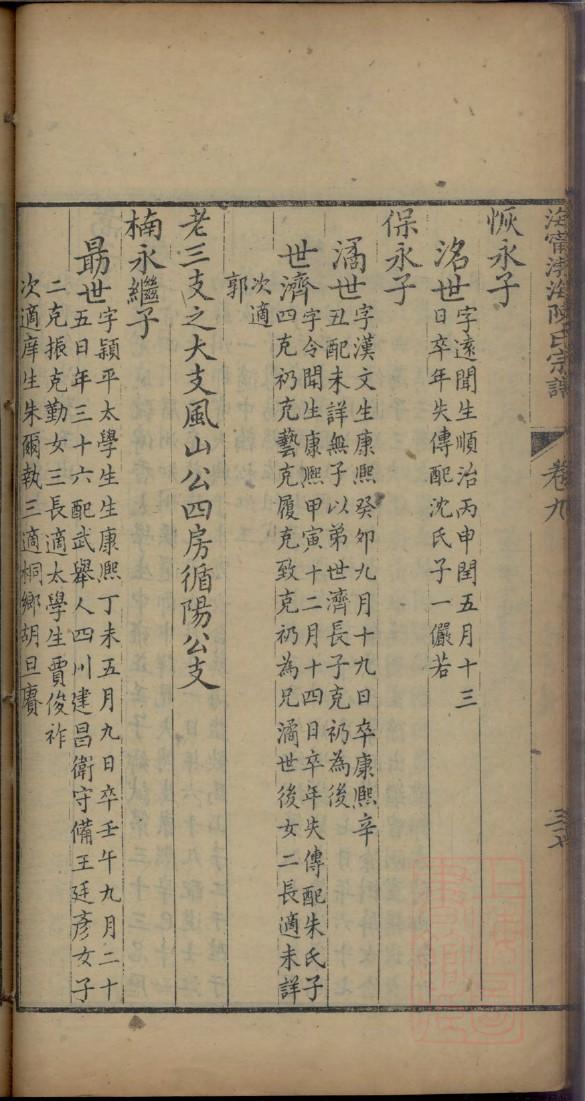 海寧渤海陳氏宗譜
卷九
恢永子
洺世
字遠聞生順治丙申閏五月十三
日卒年失傳配沈氏子一儼若
保永子
潏世
字漢文生康熙癸卯九月十九日卒康熙辛
丑配未詳無子以弟世濟長子克礽為後
世濟
字令開生康熙甲寅十二月十四日卒年失傳配朱氏子
四克礽克藝克履克致克礽為兄潏世後女二長適未詳
次適
郭
老三支之大支風山公四房循陽公支
楠永繼子
勗世
字穎平太學生生康熙丁未五月九日卒壬午九月二十
五日年三十六配武舉人四川建昌衛守備王廷彥女子
二克振克勤女三長適太學生賈俊祚
次適庠生朱爾執三適桐鄉胡旦賡